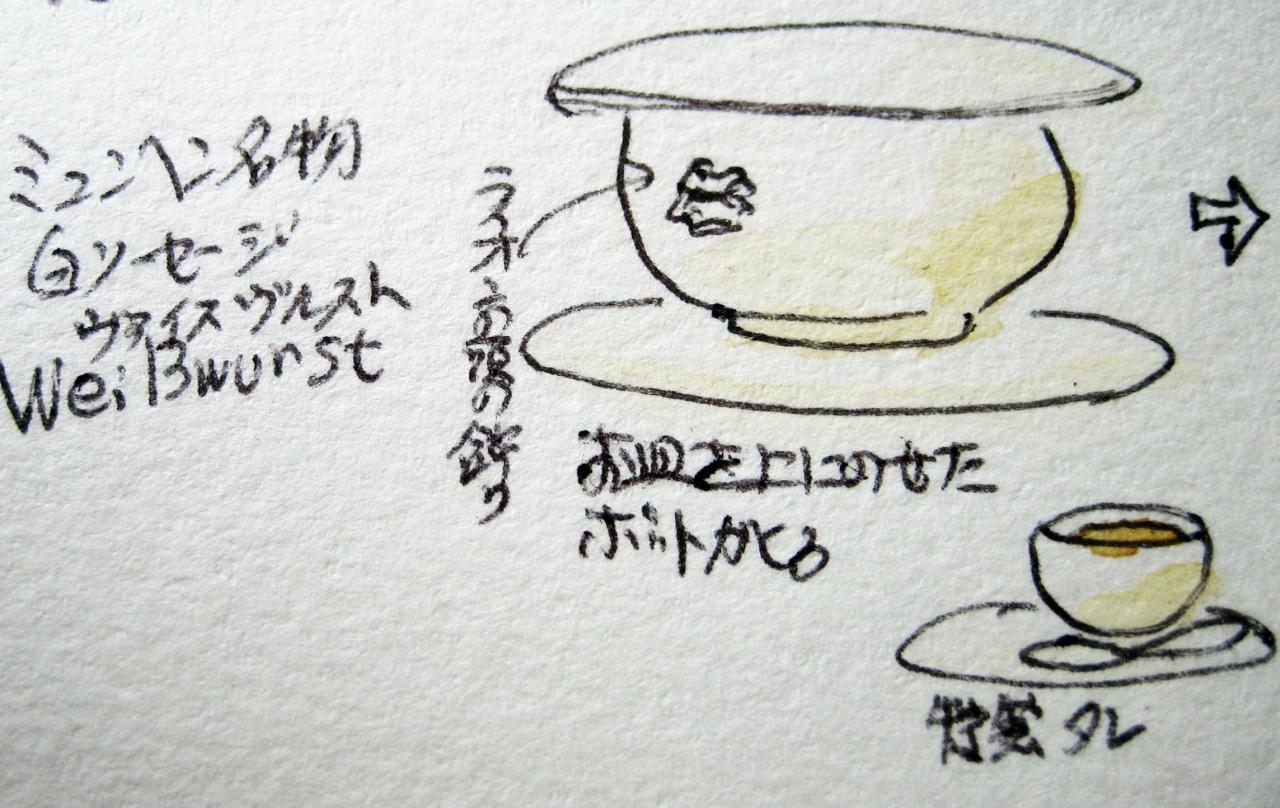 ミュンヘン名物
白ソーセージ
ヴァイスヴルスト
Weißwurst
ライオンの頭の飾り
お皿を上にのせた
ポットがくる
特製タレ